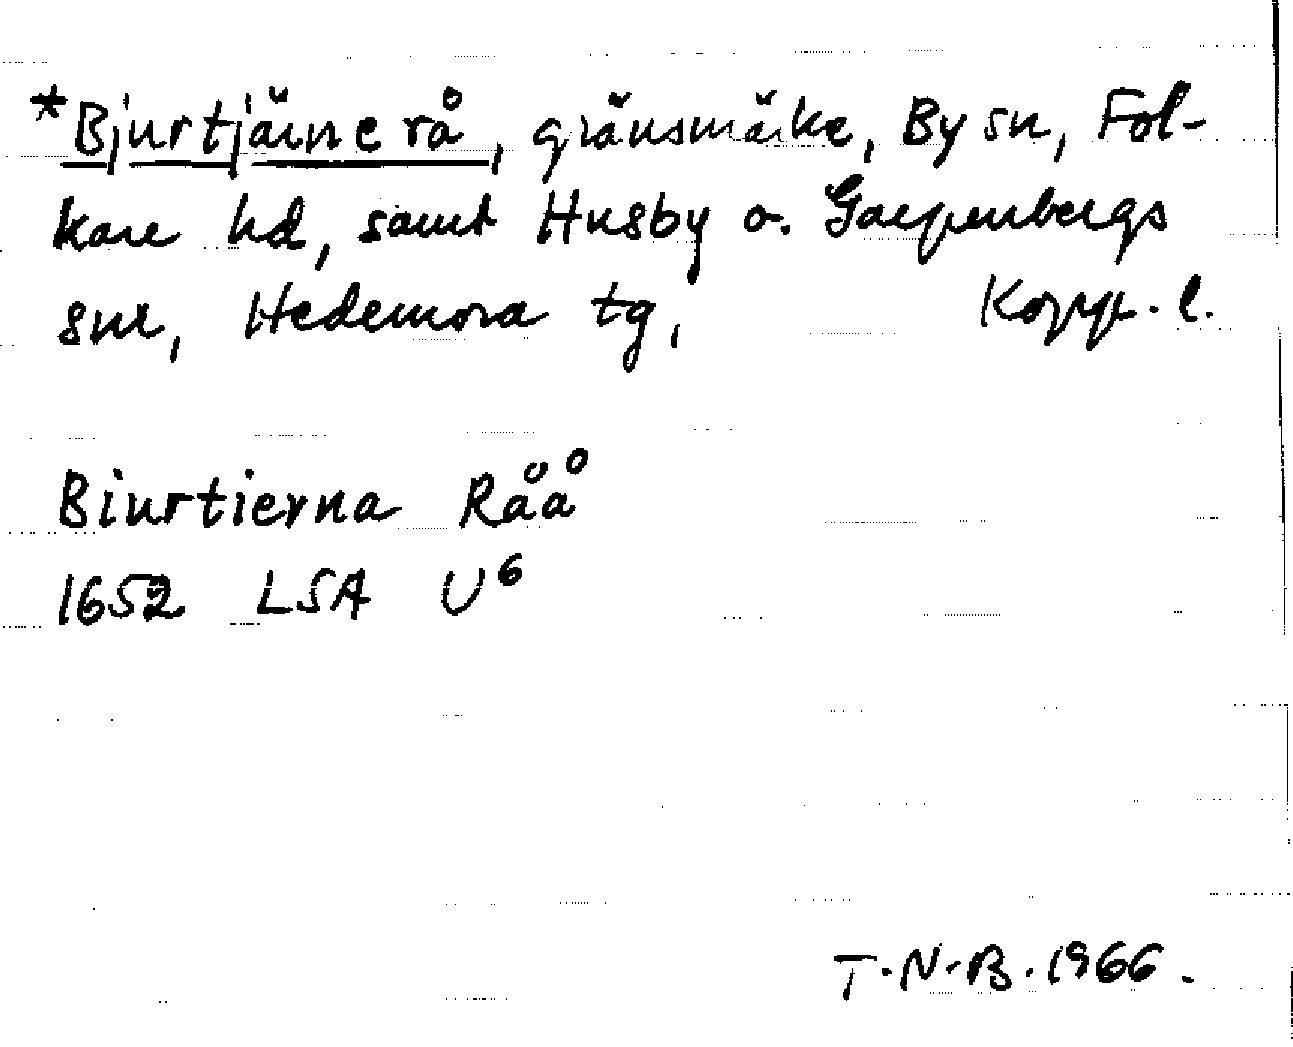 *Bjurtjärne rå, gränsmärke, By sn, Fol-
kare hd, samt Husby o. Garpenbergs
snr, Hedemora tg, Kopp. l.
Biurtierna Råå
1652 LSA U⁶
T.N.B. 1966.